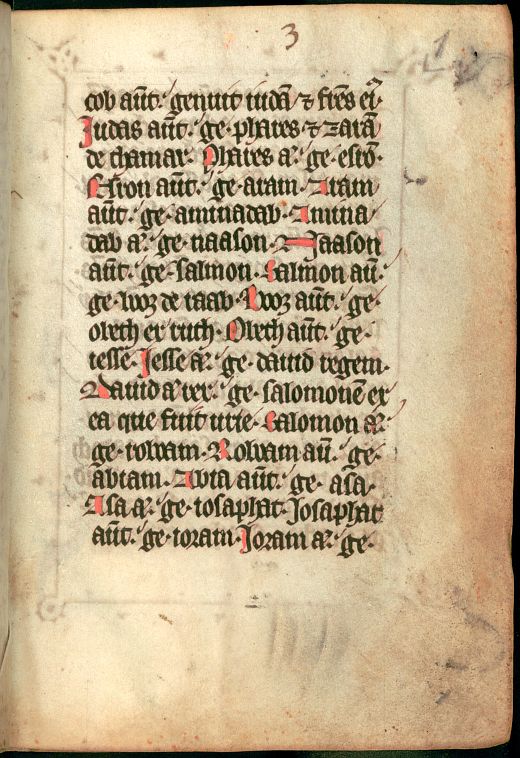 3
1
cob aut̃. genuit iudã ⁊ fr̃es eiꝰ
Judas aut̃. ge. phares ⁊ zarã
de thamar. Phares a². ge. esrõ.
Esron aut̃. ge. aram. Aram
aut̃. ge. aminadab. Amina
dab a². ge. naason. Naason
aut̃. ge. salmon. Salmon au̅.
ge. booz de raab. Booz aut̃. ge.
obeth ex ruth. Obeth aut̃. ge.
iesse. Jesse a². ge. dauid regem.
Dauid a² rex. ge. salomonẽ ex
ea que fuit urie. Salomon a².
ge. roboam. Roboam au̅. ge.
abiam. Abia aut̃. ge. asa.
Asa a². ge. iosaphat. Josaphat
aut̃. ge. ioram. Joram a². ge.